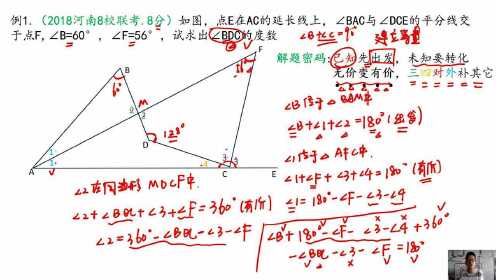 例1.（2018河南8校联考.8分）如图，点E在AC的延长线上，∠BAC与∠DCE的平分线交
于点F,∠B=60°，∠F=56°，试求出∠BDC的度数
∠B+∠C=90°
解题密码:已知先出发，未知要转化
无价变有价，三四对外补其它
∠B位于△BAM中
∠B+∠1+∠2=180°(出发)
∠1位于△AFC中
∠1+∠F+∠3+∠4=180°(有价)
∠1=180°-∠F-∠3-∠4
∠2在四边形MDCF中
∠2+∠BDC+∠3+∠F=360°(有价)
∠2=360°-∠BDC-∠3-∠F
∠B+180°-∠F-∠3-∠4+360°
-∠BDC-∠3-∠F=180°
B
60°
F
M
2
D
128°
1
1
4
3
3
A
C
E